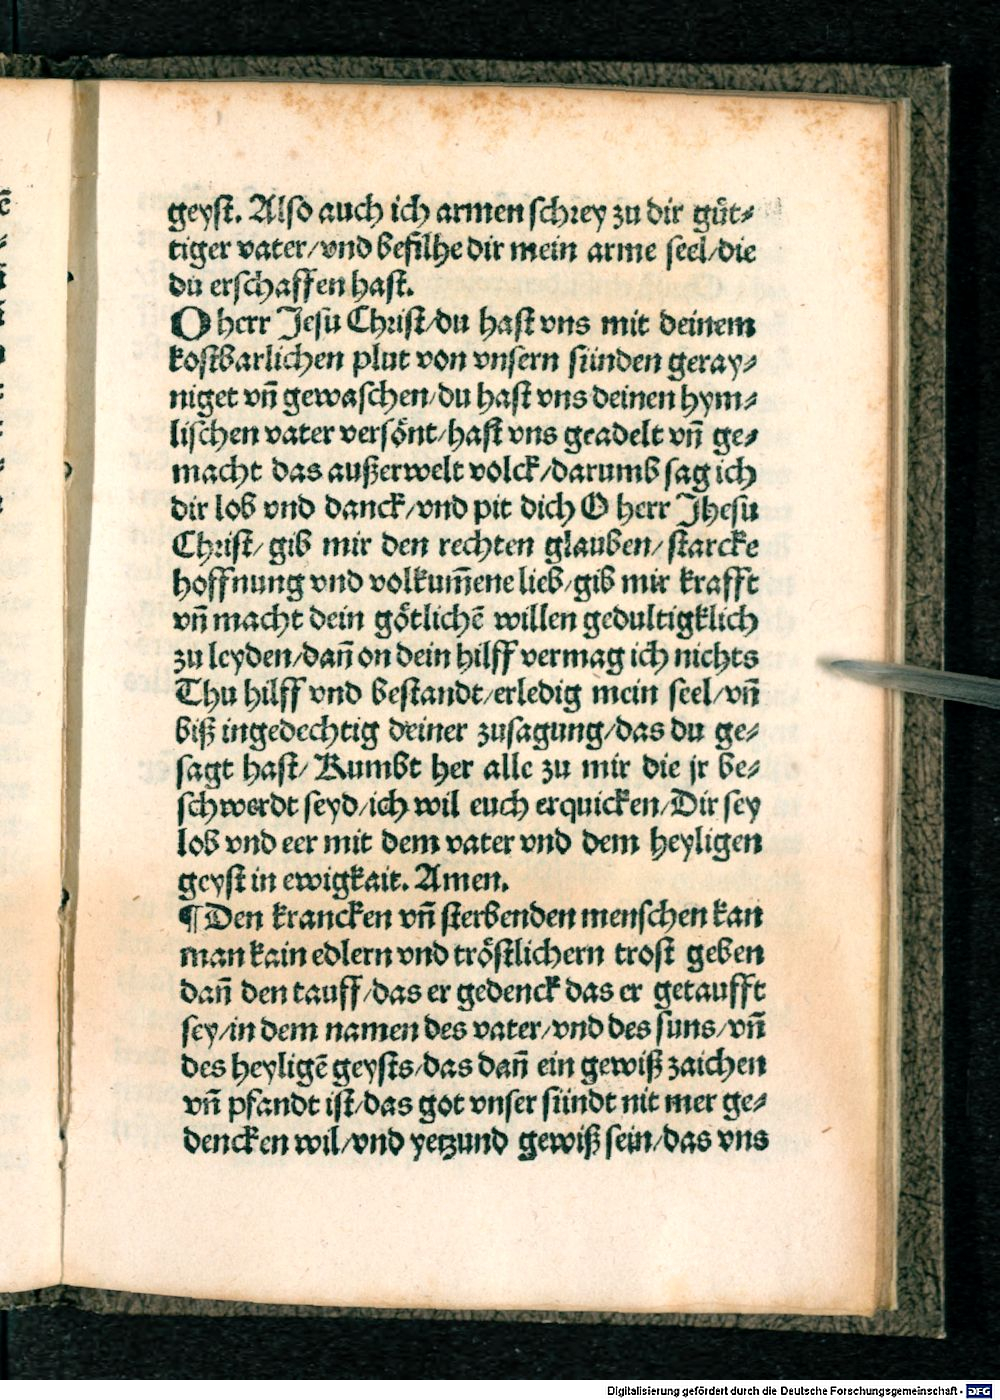 geyst. Also auch ich armen schrey zu dir güt⸗
tiger vater/vnd befilhe dir mein arme seel/die
du erschaffen hast.
O herr Jesu Christ/du hast vns mit deinem
kostbarlichen plut von vnsern sünden geray⸗
niget vñ gewaschen/du hast vns deinen hym⸗
lischen vater versönt/hast vns geadelt vñ ge⸗
macht das außerwelt volck/darumb sag ich
dir lob vnd danck/vnd pit dich O herr Jhesu
Christ/gib mir den rechten glauben/starcke
hoffnung vnd volkum̃ene lieb/gib mir krafft
vñ macht dein götlichẽ willen gedultigklich
zu leyden/dañ on dein hilff vermag ich nichts
Thu hilff vnd bestandt/erledig mein seel/vñ
biß ingedechtig deiner zusagung/das du ge⸗
sagt hast/Kumbt her alle zu mir die jr be⸗
schwerdt seyd/ich wil euch erquicken/Dir sey
lob vnd eer mit dem vater vnd dem heyligen
geyst in ewigkait. Amen.
¶ Den krancken vñ sterbenden menschen kan
man kain edlern vnd tröstlichern trost geben
dañ den tauff/das er gedenck das er getaufft
sey/in dem namen des vater/vnd des suns/vñ
des heyligẽ geysts/das dañ ein gewiß zaichen
vñ pfandt ist/das got vnser sündt nit mer ge⸗
dencken wil/vnd yetzund gewiß sein/das vns
Digitalisierung gefördert durch die Deutsche Forschungsgemeinschaft - DFG